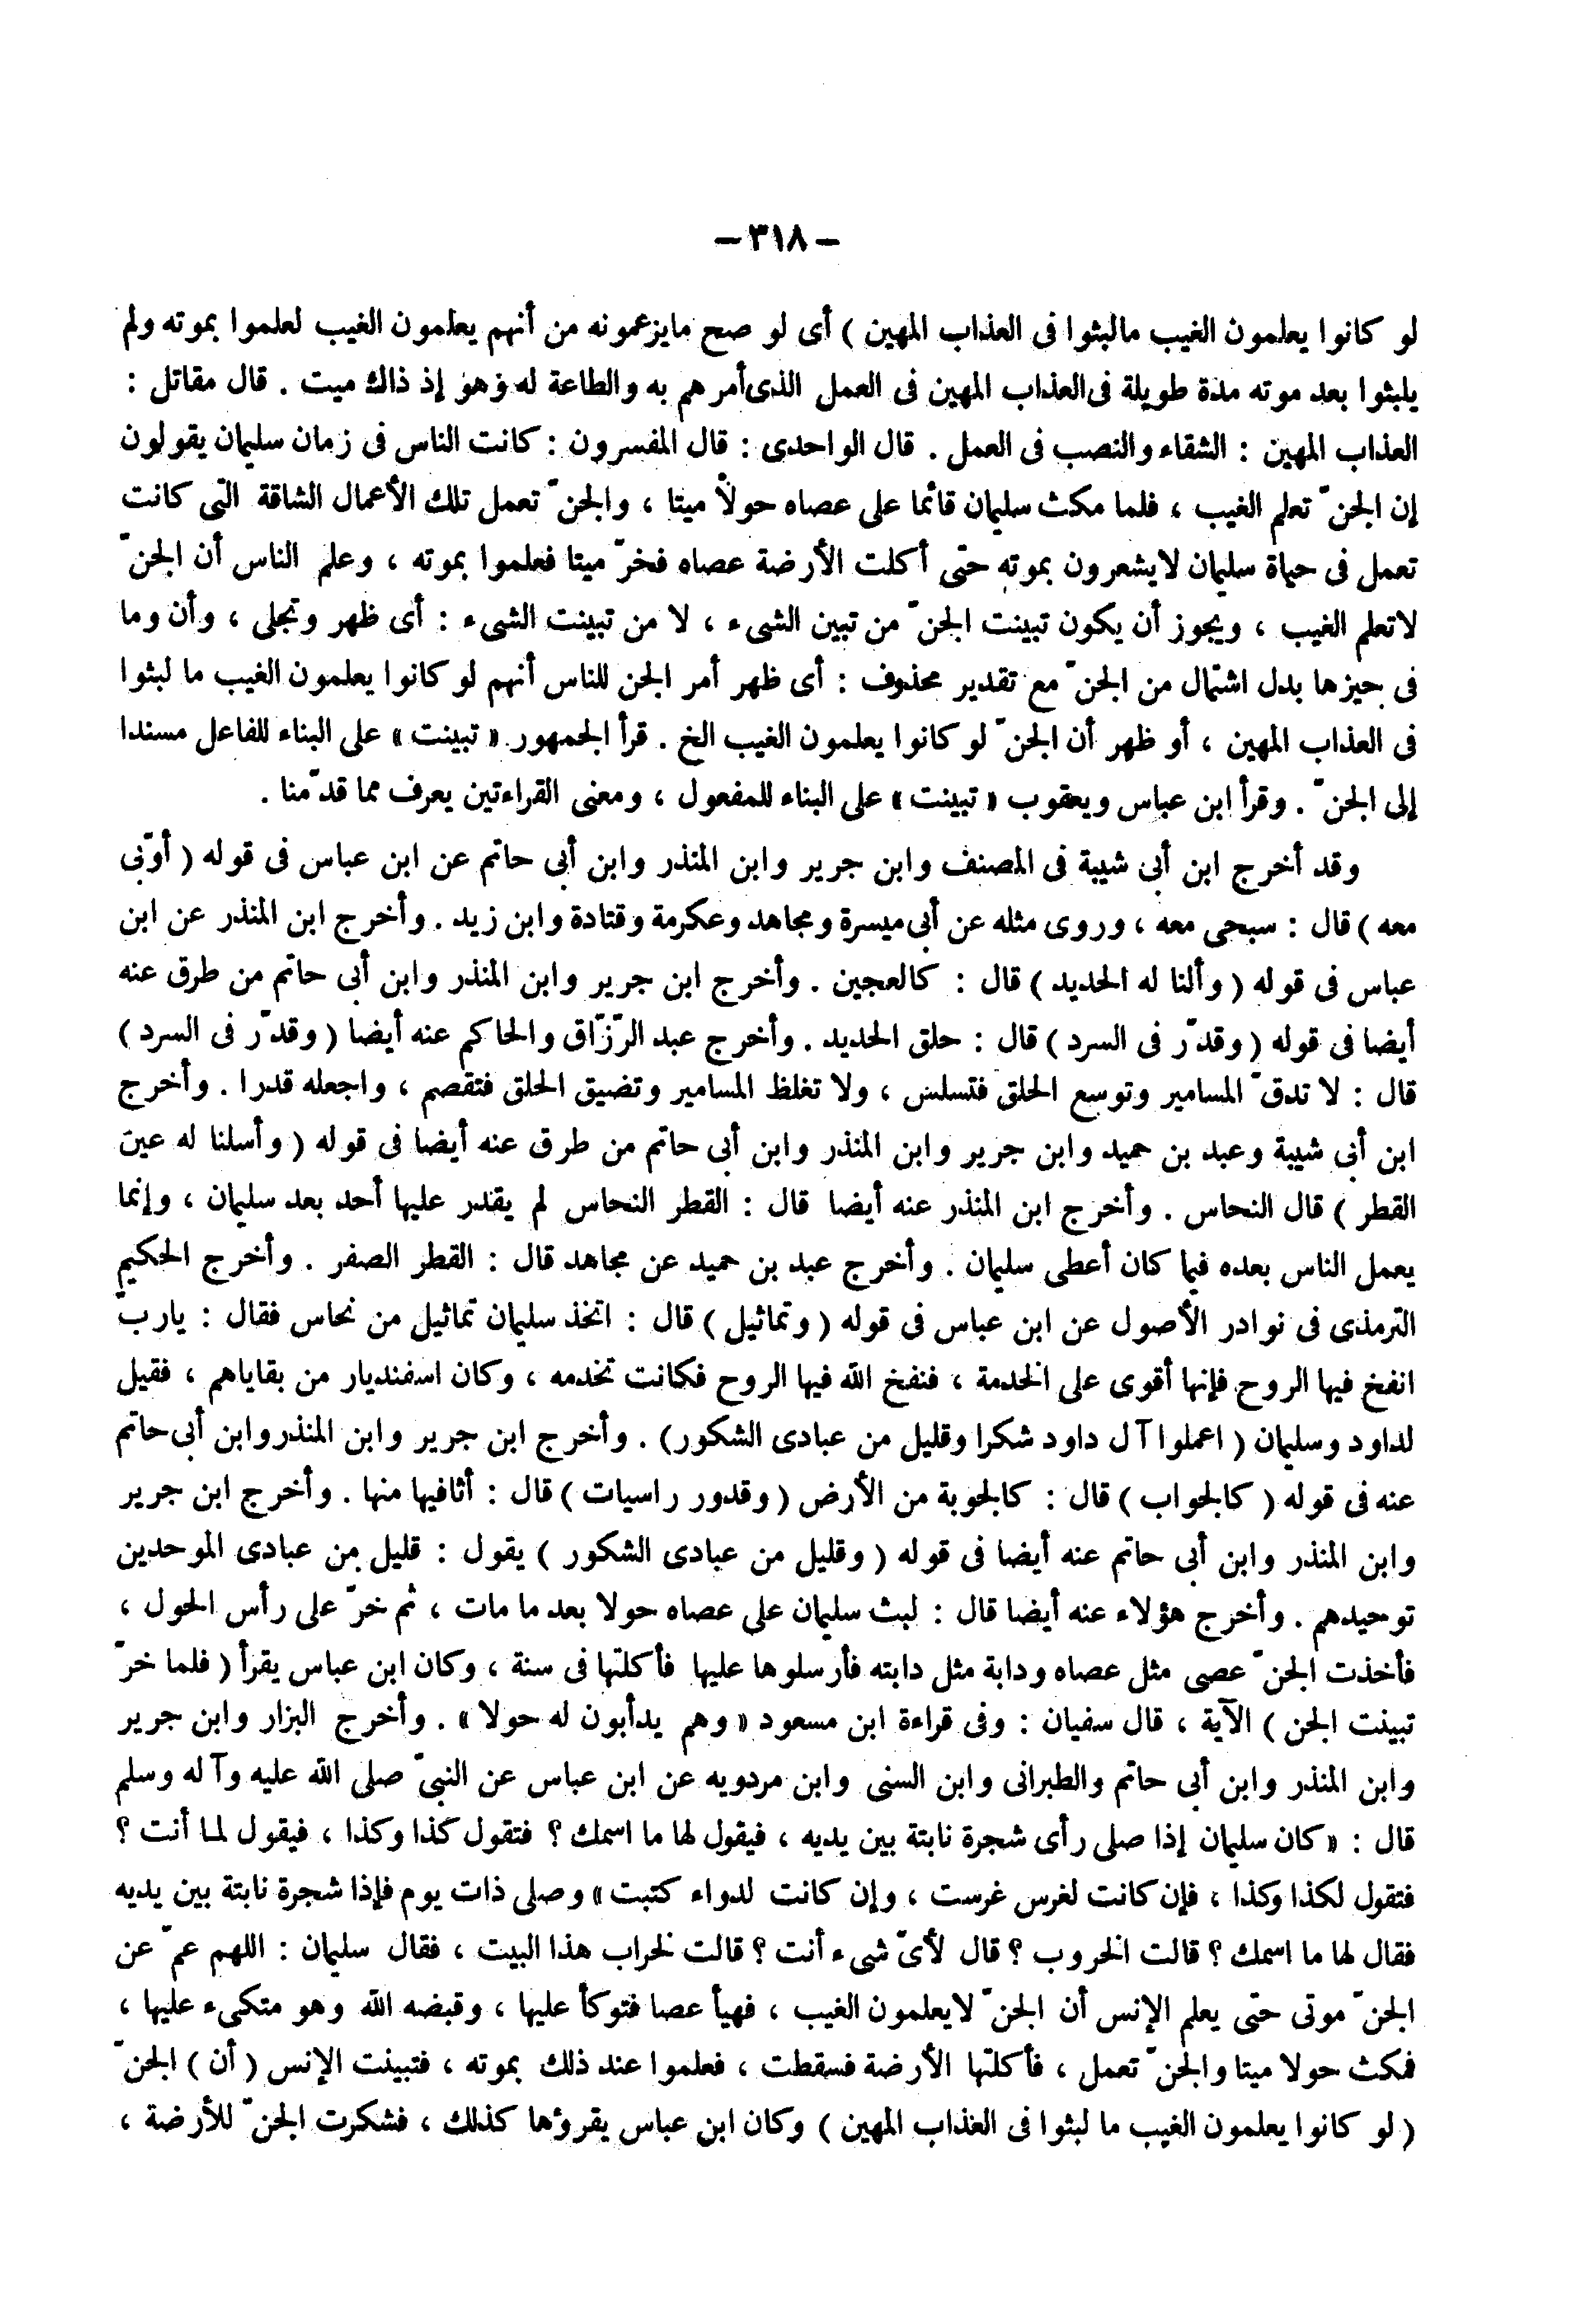 - ٣١٨ -
لو كانوا يعلمون الغيب مالبثوا فى العذاب المهين ) أى لو صح مايزعمونه من أنهم يعلمون الغيب لعلموا بموته ولم
يلبثوا بعد موته مدة طويلة فى العذاب المهين فى العمل الذى أمرهم به والطاعة له وهو إذ ذاك ميت . قال مقاتل :
العذاب المهين : الشقاء والنصب فى العمل . قال الواحدى : قال المفسرون : كانت الناس فى زمان سليمان يقولون
إن الجنّ تعلم الغيب ، فلما مكث سليمان قائما على عصاه حولاً ميتا ، والجنّ تعمل تلك الأعمال الشاقة التى كانت
تعمل فى حياة سليمان لايشعرون بموته حتى أكلت الأرضة عصاه فخرّ ميتا فعلموا بموته ، وعلم الناس أن الجنّ
لاتعلم الغيب ، ويجوز أن يكون تبينت الجنّ من تبين الشىء ، لا من تبينت الشىء : أى ظهر وتجلى ، وأن وما
فى حيزها بدل اشتمال من الجنّ مع تقدير محذوف : أى ظهر أمر الجن للناس أنهم لو كانوا يعلمون الغيب ما لبثوا
فى العذاب المهين ، أو ظهر أن الجنّ لو كانوا يعلمون الغيب الخ . قرأ الجمهور « تبينت » على البناء للفاعل مسندا
إلى الجنّ . وقرأ ابن عباس ويعقوب « تبينت » على البناء للمفعول ، ومعنى القراءتين يعرف مما قدّمنا .
وقد أخرج ابن أبى شيبة فى المصنف وابن جرير وابن المنذر وابن أبى حاتم عن ابن عباس فى قوله ( أوّبى
معه ) قال : سبحى معه ، وروى مثله عن أبى ميسرة ومجاهد وعكرمة وقتادة وابن زيد . وأخرج ابن المنذر عن ابن
عباس فى قوله ( وألنا له الحديد ) قال : كالعجين . وأخرج ابن جرير وابن المنذر وابن أبى حاتم من طرق عنه
أيضا فى قوله ( وقدّر فى السرد ) قال : حلق الحديد . وأخرج عبد الرّزّاق والحاكم عنه أيضا ( وقدّر فى السرد )
قال : لا تدقّ المسامير وتوسع الحلق فتسلس ، ولا تغلظ المسامير وتضيق الحلق فتقصم ، واجعله قدرا . وأخرج
ابن أبى شيبة وعبد بن حميد وابن جرير وابن المنذر وابن أبى حاتم من طرق عنه أيضا فى قوله ( وأسلنا له عين
القطر ) قال النحاس . وأخرج ابن المنذر عنه أيضا قال : القطر النحاس لم يقدر عليها أحد بعد سليمان ، وإنما
يعمل الناس بعده فيما كان أعطى سليمان . وأخرج عبد بن حميد عن مجاهد قال : القطر الصفر . وأخرج الحكيم
الترمذى فى نوادر الأصول عن ابن عباس فى قوله ( وتماثيل ) قال : اتخذ سليمان تماثيل من نحاس فقال : يارب
انفخ فيها الروح فإنها أقوى على الخدمة ، فنفخ الله فيها الروح فكانت تخدمه ، وكان اسفنديار من بقاياهم ، فقيل
لداود وسليمان ( اعملوا آل داود شكرا وقليل من عبادى الشكور) . وأخرج ابن جرير وابن المنذر وابن أبى حاتم
عنه فى قوله ( كالجواب ) قال : كالجوبة من الأرض ( وقدور راسيات ) قال : أثافيها منها . وأخرج ابن جرير
وابن المنذر وابن أبى حاتم عنه أيضا فى قوله ( وقليل من عبادى الشكور ) يقول : قليل من عبادى الموحدين
توحيدهم . وأخرج هؤلاء عنه أيضا قال : لبث سليمان على عصاه حولا بعد ما مات ، ثم خرّ على رأس الحول ،
فأخذت الجنّ عصى مثل عصاه ودابة مثل دابته فأرسلوها عليها فأكلتها فى سنة ، وكان ابن عباس يقرأ ( فلما خرّ
تبينت الجن ) الآية ، قال سفيان : وفى قراءة ابن مسعود « وهم يدأبون له حولا » . وأخرج البزار وابن جرير
وابن المنذر وابن أبى حاتم والطبرانى وابن السنى وابن مردويه عن ابن عباس عن النبىّ صلى الله عليه وآله وسلم
قال : « كان سليمان إذا صلى رأى شجرة نابتة بين يديه ، فيقول لها ما اسمك ؟ فتقول كذا وكذا ، فيقول لما أنت ؟
فتقول لكذا وكذا ، فإن كانت لغرس غرست ، وإن كانت لدواء كتبت » وصلى ذات يوم فإذا شجرة نابتة بين يديه
فقال لها ما اسمك ؟ قالت الخروب ؟ قال لأىّ شىء أنت ؟ قالت لخراب هذا البيت ، فقال سليمان : اللهم عمّ عن
الجنّ موتى حتى يعلم الإنس أن الجنّ لايعلمون الغيب ، فهيأ عصا فتوكأ عليها ، وقبضه الله وهو متكىء عليها ،
فمكث حولا ميتا والجنّ تعمل ، فأكلتها الأرضة فسقطت ، فعلموا عند ذلك بموته ، فتبينت الإنس ( أن ) الجنّ
( لو كانوا يعلمون الغيب ما لبثوا فى العذاب المهين ) وكان ابن عباس يقرؤها كذلك ، فشكرت الجنّ للأرضة ،